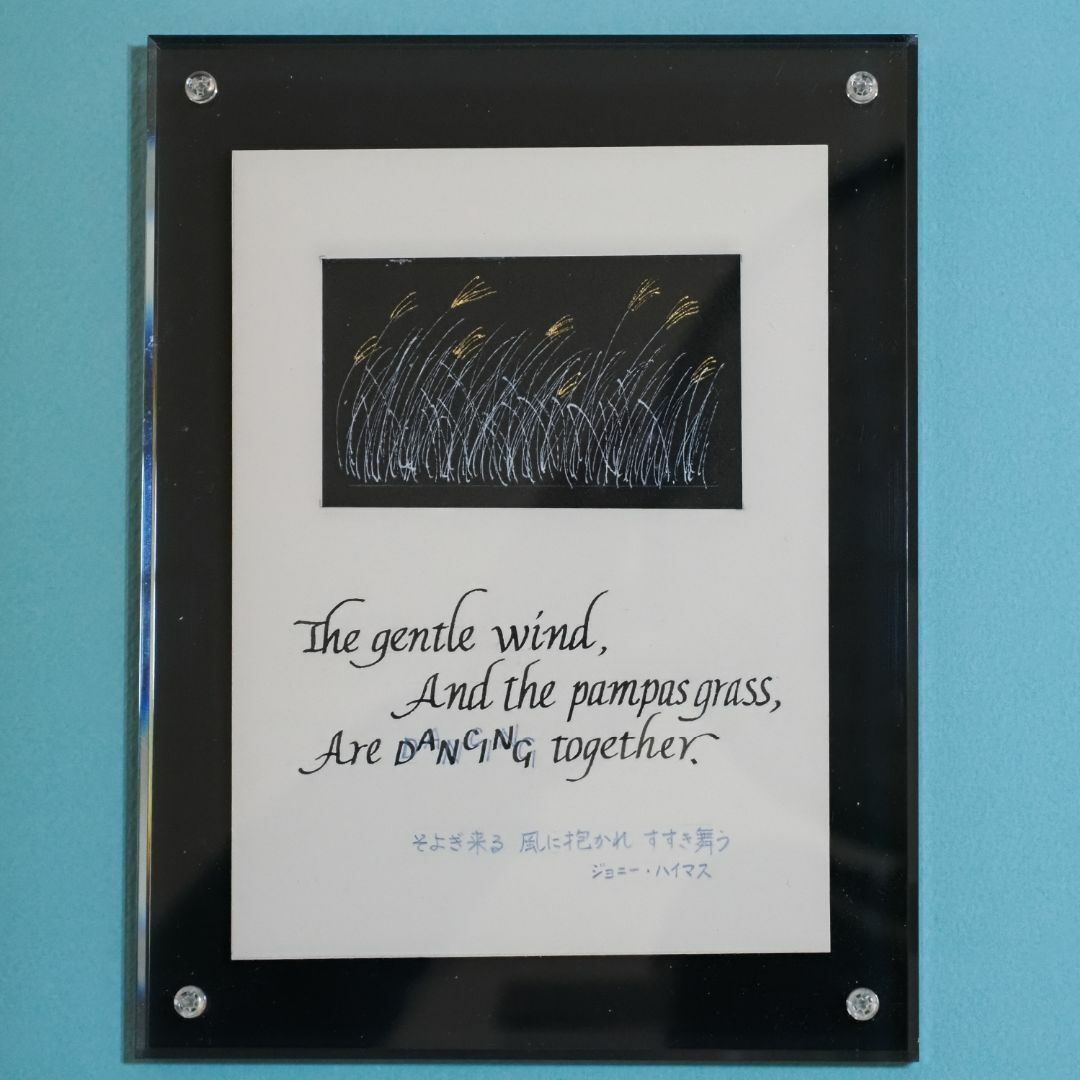 The gentle wind,
And the pampas grass,
Are DANCING together.
そよぎ来る 風に抱かれ すすき舞う
ジョニー・ハイマス